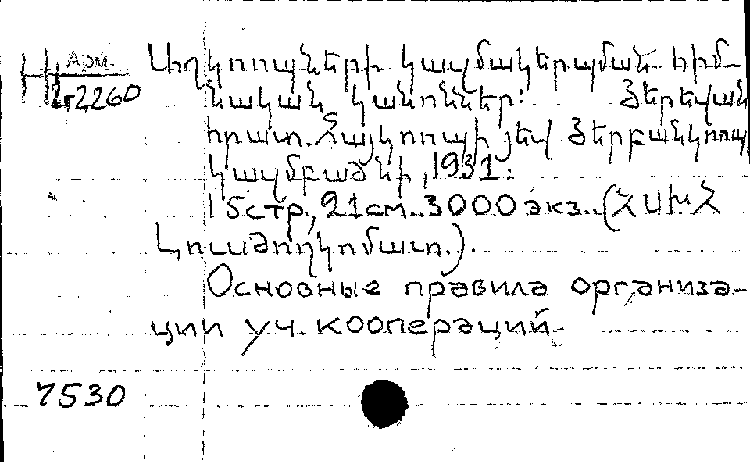 Арм.
2260
Աղկոոպների կազմակերպման հիմ-
նական կանոններ: Յերեվան
հրատ. Հայկոոպի յեվ Յերբանկոոպ
կազմբաժնի, 1931.
15 стр., 21 см. 3000 экз. (ՀՍԽՀ
Լուսժողկոմատ.).
Основные правила организа-
ции уч. кооперации.
7530